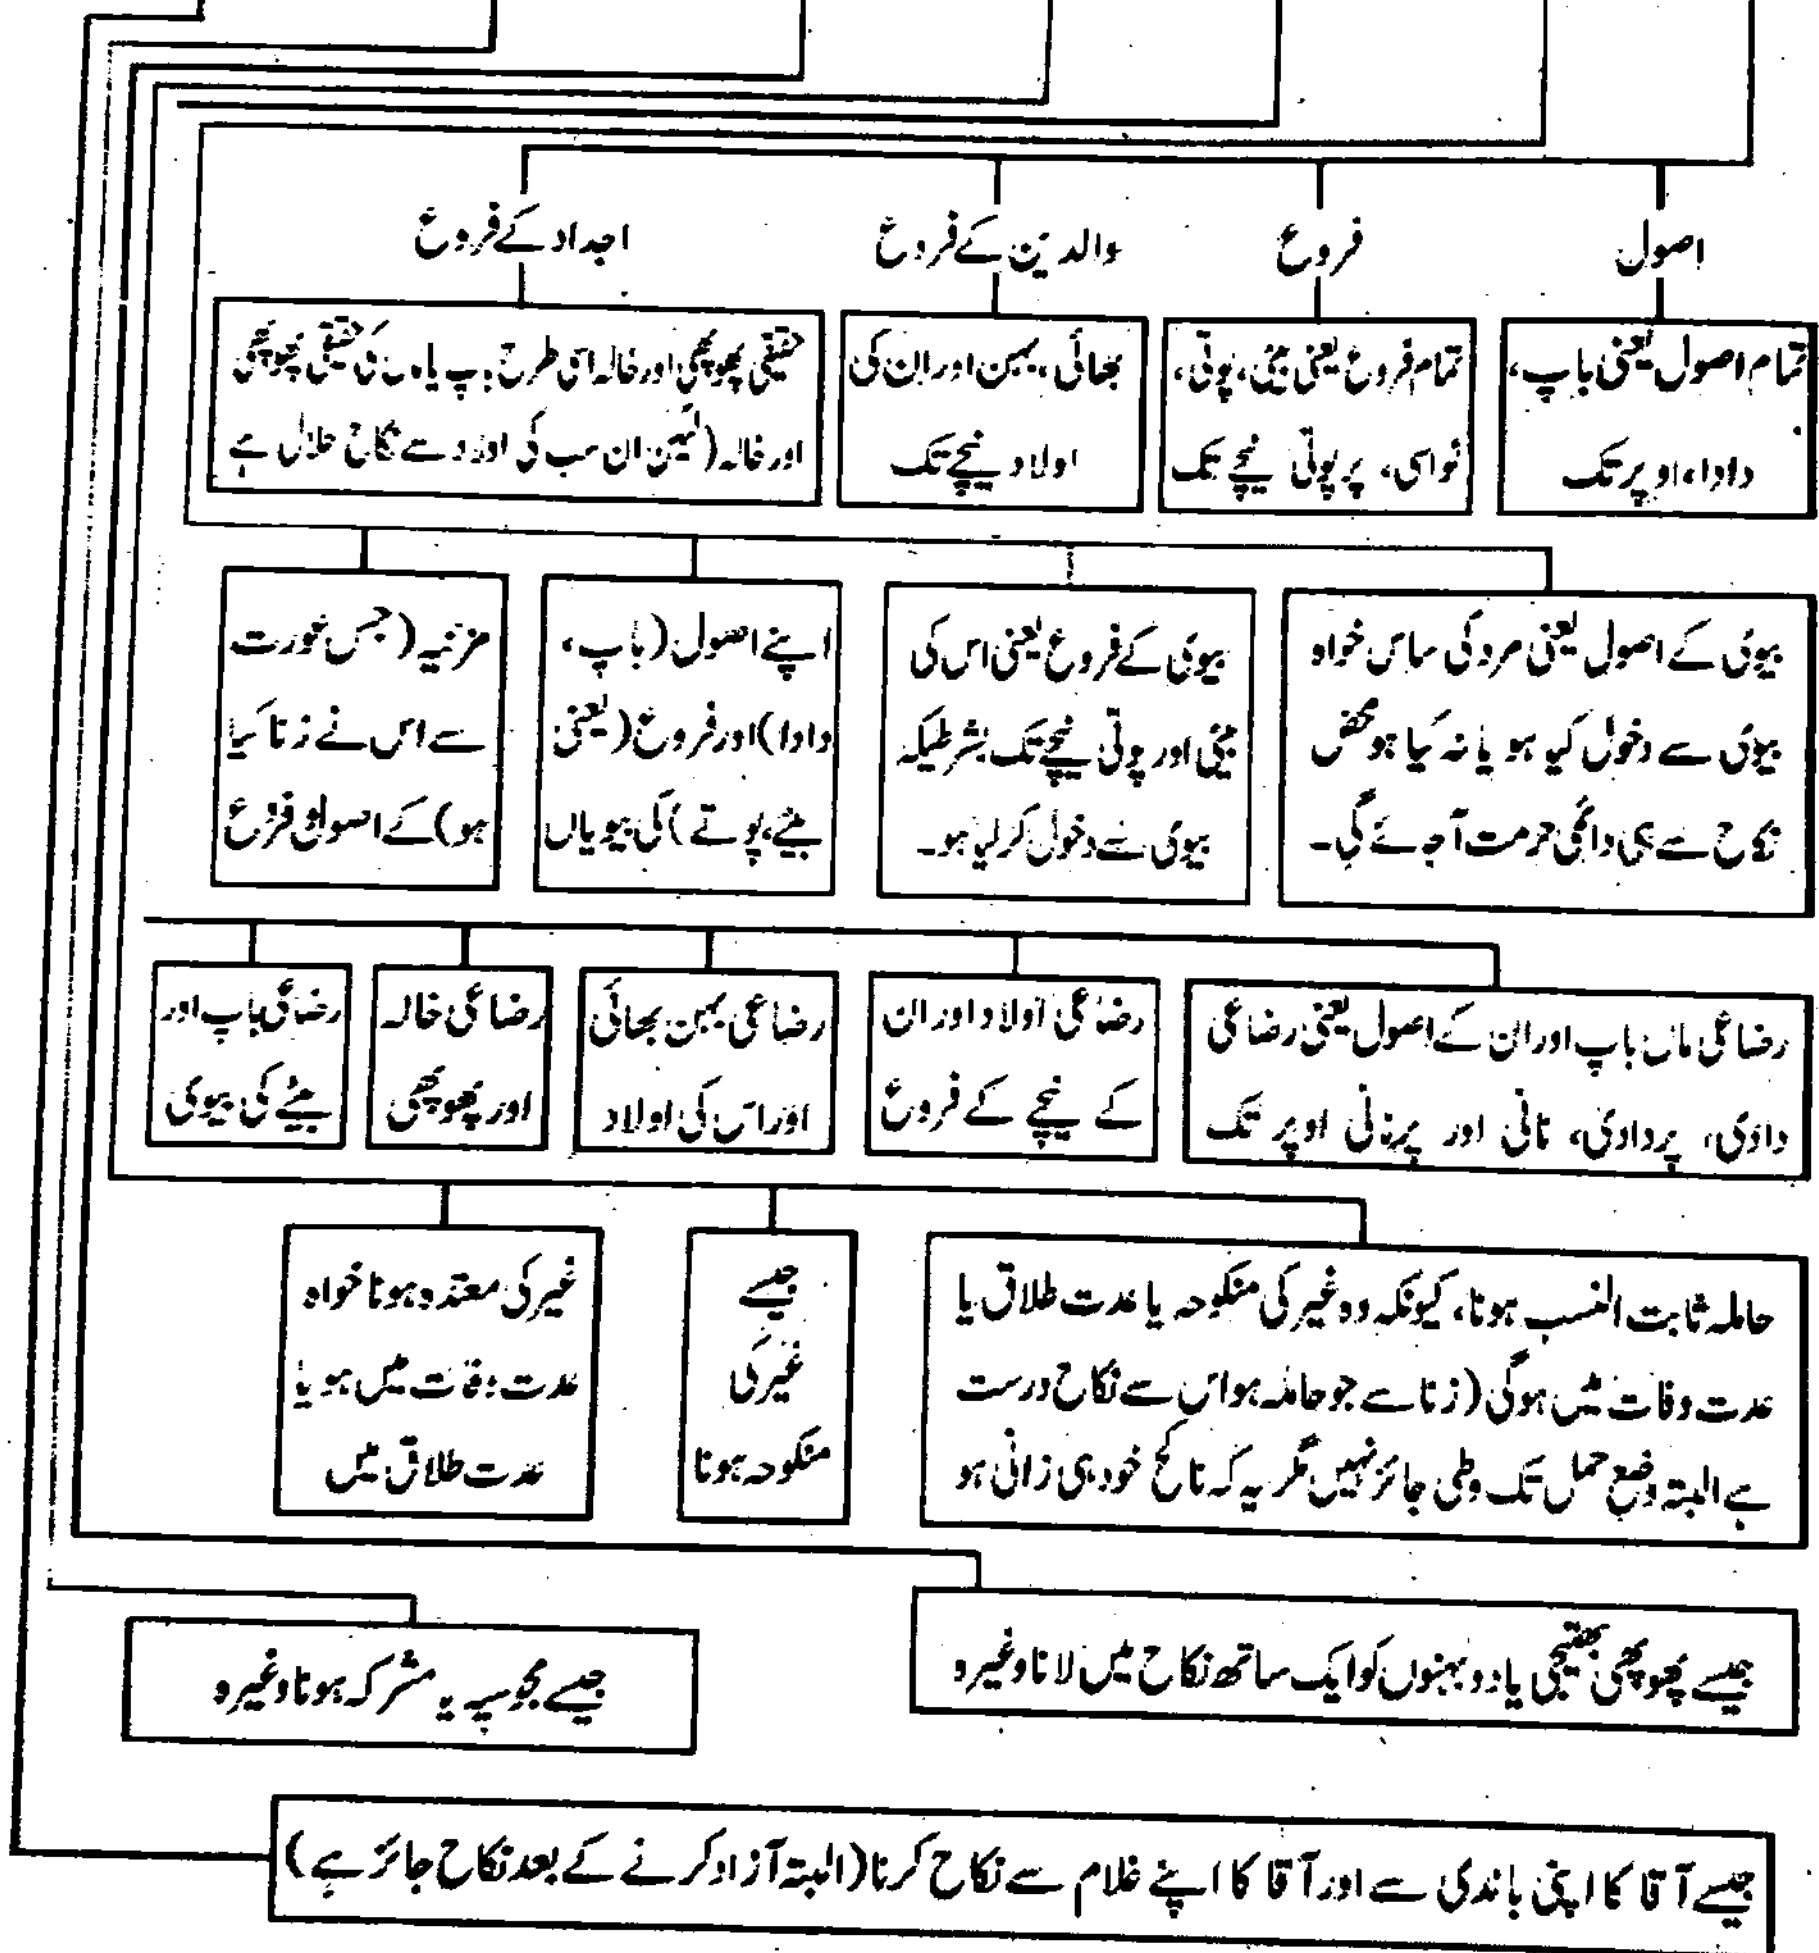 اصول
فروع
والدین کے فروع
اجداد کے فروع
تمام اصول یعنی باپ،
دادا، اوپر تک
تمام فروع یعنی بیٹی، پوتی،
نواسی، پرپوتی نیچے تک
بھائی، بہن اور ان کی
اولاد نیچے تک
حقیقی پھوپھی اور خالہ اسی طرح باپ یا ماں کی حقیقی پھوپھی
اور خالہ (لیکن ان سب کی اولاد سے نکاح حلال ہے
بیوی کے اصول یعنی مرد کی ساس خواہ
بیوی سے دخول کیا ہو یا نہ کیا ہو محض
نکاح سے ہی دائمی حرمت آجائے گی۔
بیوی کے فروع یعنی اس کی
بیٹی اور پوتی نیچے تک بشرطیکہ
بیوی سے دخول کرلیا ہو۔
اپنے اصول (باپ،
دادا) اور فروع (یعنی
بیٹے، پوتے) کی بیویاں
مزنیہ (جس عورت
سے اس نے زنا کیا
ہو) کے اصول و فروع
رضاعی ماں باپ اور ان کے اصول یعنی رضاعی
دادی، پردادی، نانی اور پرنانی اوپر تک
رضاعی اولاد اور ان
کے نیچے کے فروع
رضاعی بہن بھائی
اور اس کی اولاد
رضاعی خالہ
اور پھوپھی
رضاعی باپ اور
بیٹے کی بیوی
حاملہ ثابت النسب ہونا، کیونکہ وہ غیر کی منکوحہ یا عدت طلاق یا
عدت وفات میں ہوگی (زنا سے جو حاملہ ہو اس سے نکاح درست
ہے البتہ وضع حمل تک وطی جائز نہیں مگر یہ کہ ناکح خود ہی زانی ہو
جیسے
غیر کی
منکوحہ ہونا
غیر کی معتدہ ہونا خواہ
عدت وفات میں ہو یا
عدت طلاق میں
جیسے پھوپھی بھتیجی یا دو بہنوں کو ایک ساتھ نکاح میں لانا وغیرہ
جیسے مجوسیہ یا مشرکہ ہونا وغیرہ
جیسے آقا کا اپنی باندی سے اور آقا کا اپنے غلام سے نکاح کرنا (البتہ آزاد کرنے کے بعد نکاح جائز ہے)